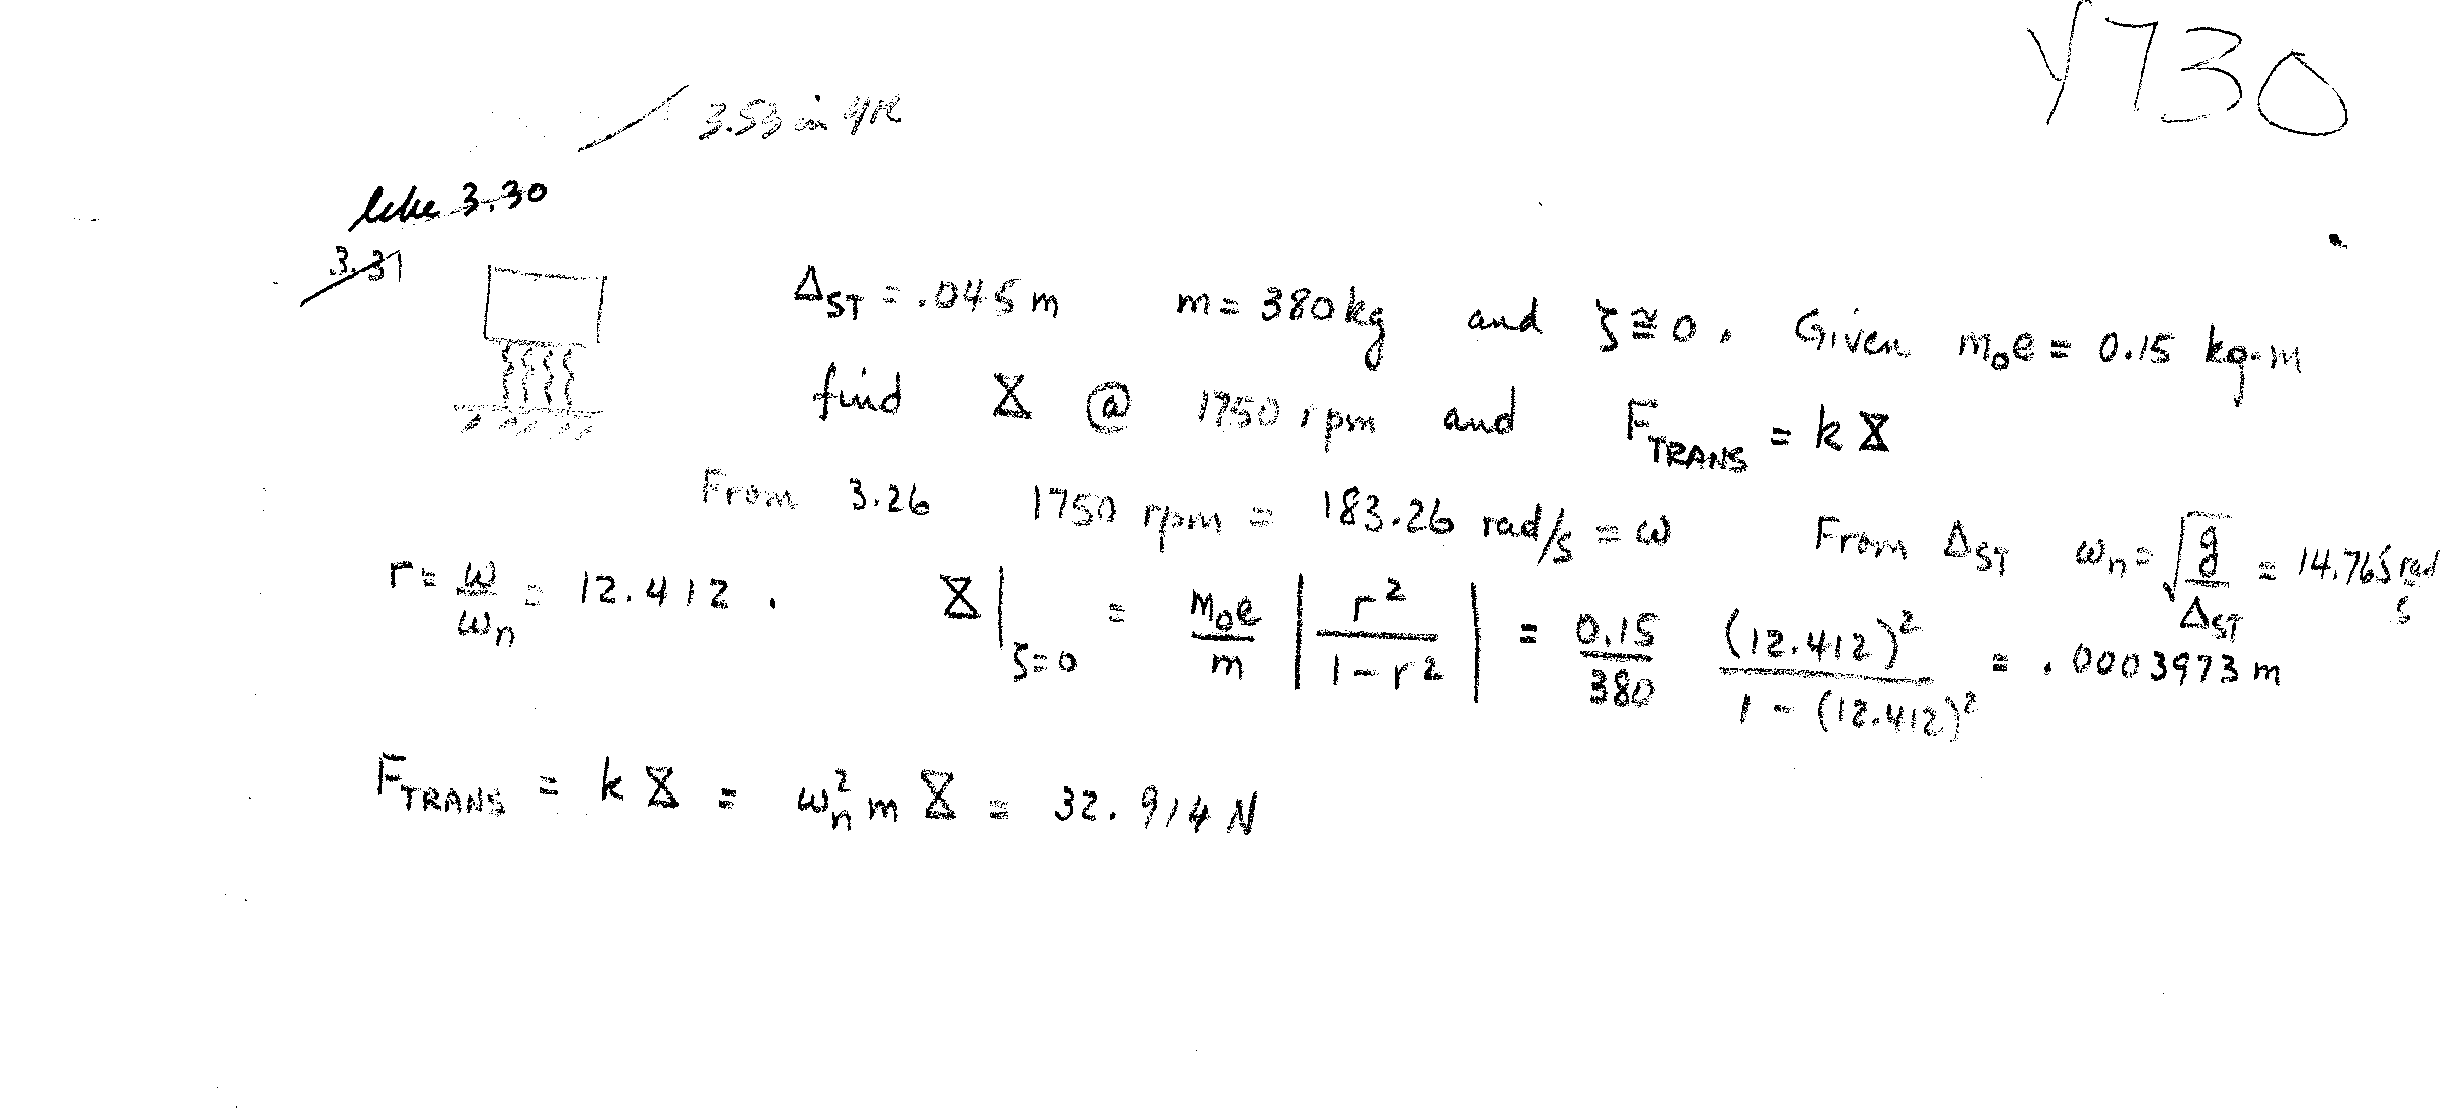 4730
3.53 in 4/e
like 3.30
3.31
Δ_ST = .045 m m = 380 kg and ζ ≅ 0. Given m₀e = 0.15 kg·m
find X @ 1750 rpm and F_TRANS = k X
From 3.26 1750 rpm = 183.26 rad/s = ω From Δ_ST ω_n = √(g/Δ_ST) = 14.765 rad/s
r = ω/ω_n = 12.412. X|_ζ=0 = m₀e/m |r²/(1-r²)| = 0.15/380 (12.412)²/(1-(12.412)²) = .0003973 m
F_TRANS = k X = ω_n² m X = 32.914 N